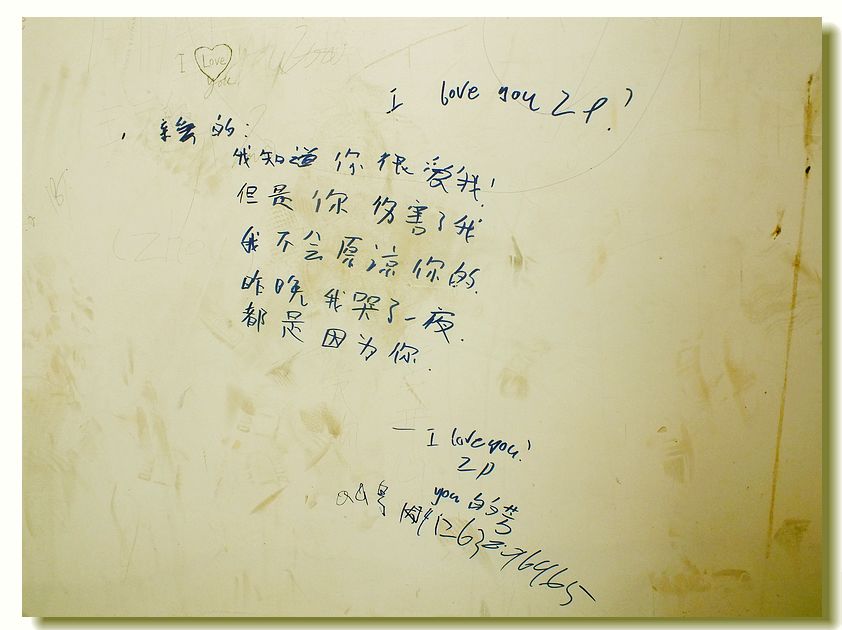 I Love you
I love you ZP!
的:
我知道你很爱我!
但是你伤害了我
我不会原谅你的.
昨晚我哭了一夜.
都是因为你.
— I love you!
ZP
you 的梦
QQ号